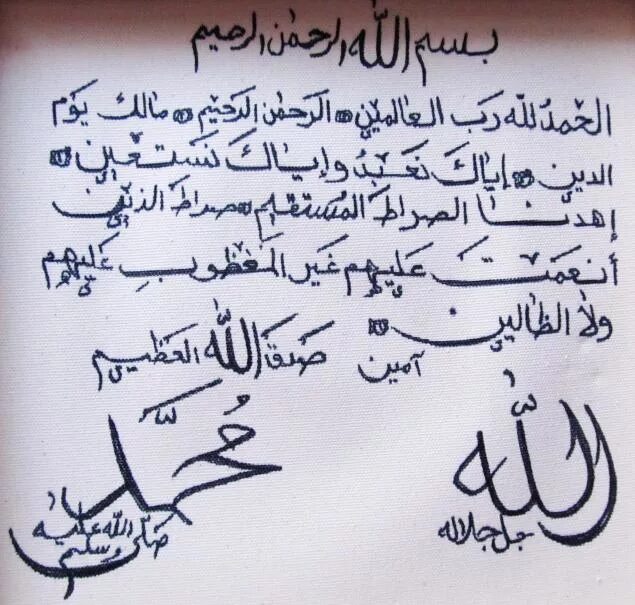 بسم الله الرحمن الرحيم
الحمد لله رب العالمين الرحمن الرحيم مالك يوم
الدين إياك نعبد وإياك نستعين
إهدنا الصراط المستقيم صراط الذين
أنعمت عليهم غير المغظوب عليهم
ولا الظالين
آمين صدق الله العظيم
الله
جل جلاله
محمد
صلى الله عليه
وسلم